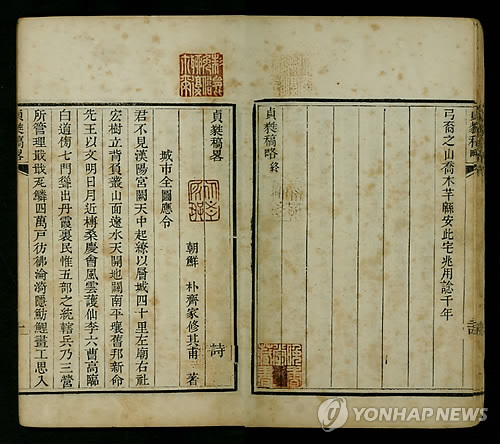 貞蕤稿略
弓裔之山喬木芊緜安此宅兆用諗千年
貞蕤稿略終
貞蕤稿畧 詩
朝鮮 朴齊家修其甫 著
城市全圖應令
君不見漢陽宮闕天中起繚以層城四十里左廟右社
宏樹立背負叢山面遠水天開地闢南平壤舊邦新命
先王以文明日月近榑桑慶會風雲護仙李六曹高臨
白道傍七門聳出丹霞裏民惟五部之統轄兵乃三營
所管理戢戢瓦鱗四萬戶彷彿淪漪隱魴鯉畫工思入
貞蕤稿畧 一
YONHAP NEWS